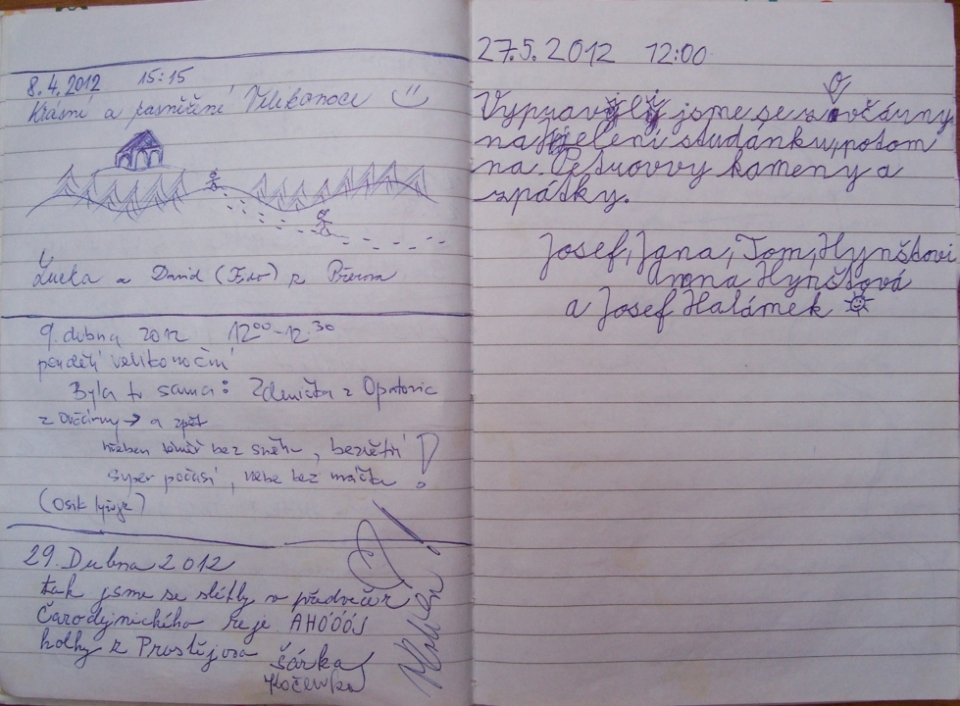 8.4.2012 15:15
Krásné a zasněžené Velikonoce
Lucka a David (Evo) z Přerova
9. dubna 2012 12⁰⁰-12.³⁰
pondělí velikonoční
Byla tu sama: Zdenička z Opatovic
z Ovčárny → a zpět
hřeben téměř bez sněhu, bezvětří !
super počasí, nebe bez mráčku
(Osik lyžuje)
29. Dubna 2012
tak jsme se slétly v předvečer
Čarodejnického reje AHÓÓÓJ
holky z Prostějova
Šárka
27.5.2012 12:00
Vypravyly jsme se z ovčárny
na jelení studánku, potom
na Petrovy kameny a
zpátky.
Josef, Jana, Tom, Hynštovi
anna Hynštová
a Josef Halámek